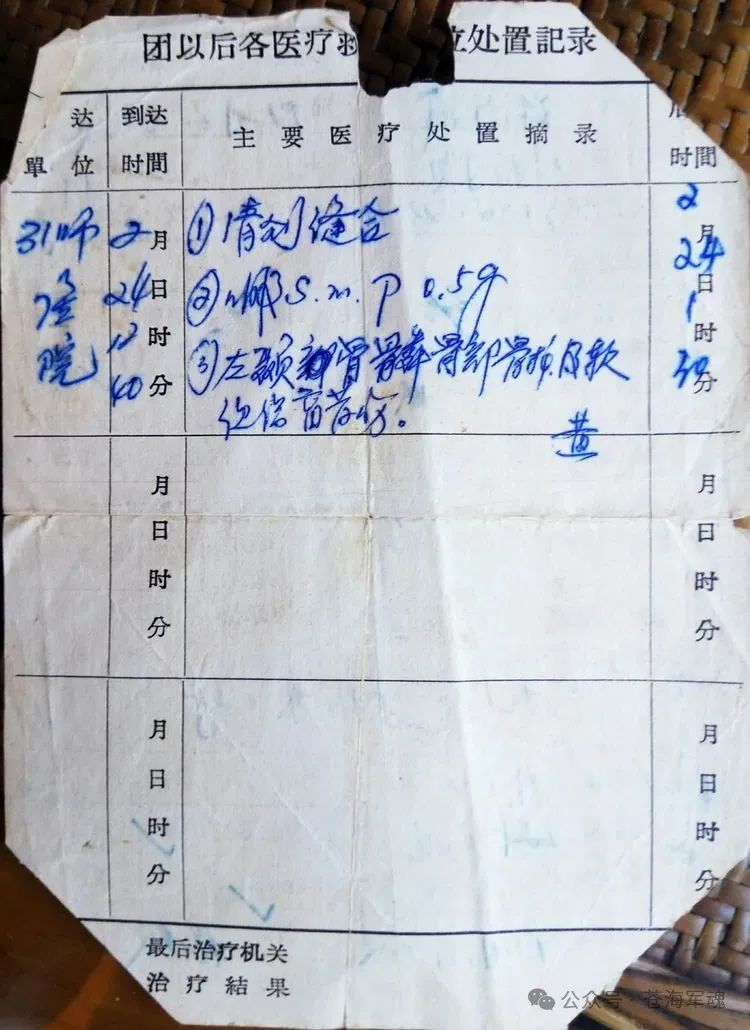 团以后各医疗 处置記录
达 到达 主要医疗处置摘录 后
單位 时間 时間
31师 2月 ①清创缝合 2月
医 24日 ② S.m.P 0.5g 24日
院 12时 ③左颞部 骨部 及软 1时
40分 伤! 30分
黄
月 月
日 日
时 时
分 分
月 月
日 日
时 时
分 分
最后治疗机关
治疗結果
公众号·苍海军魂